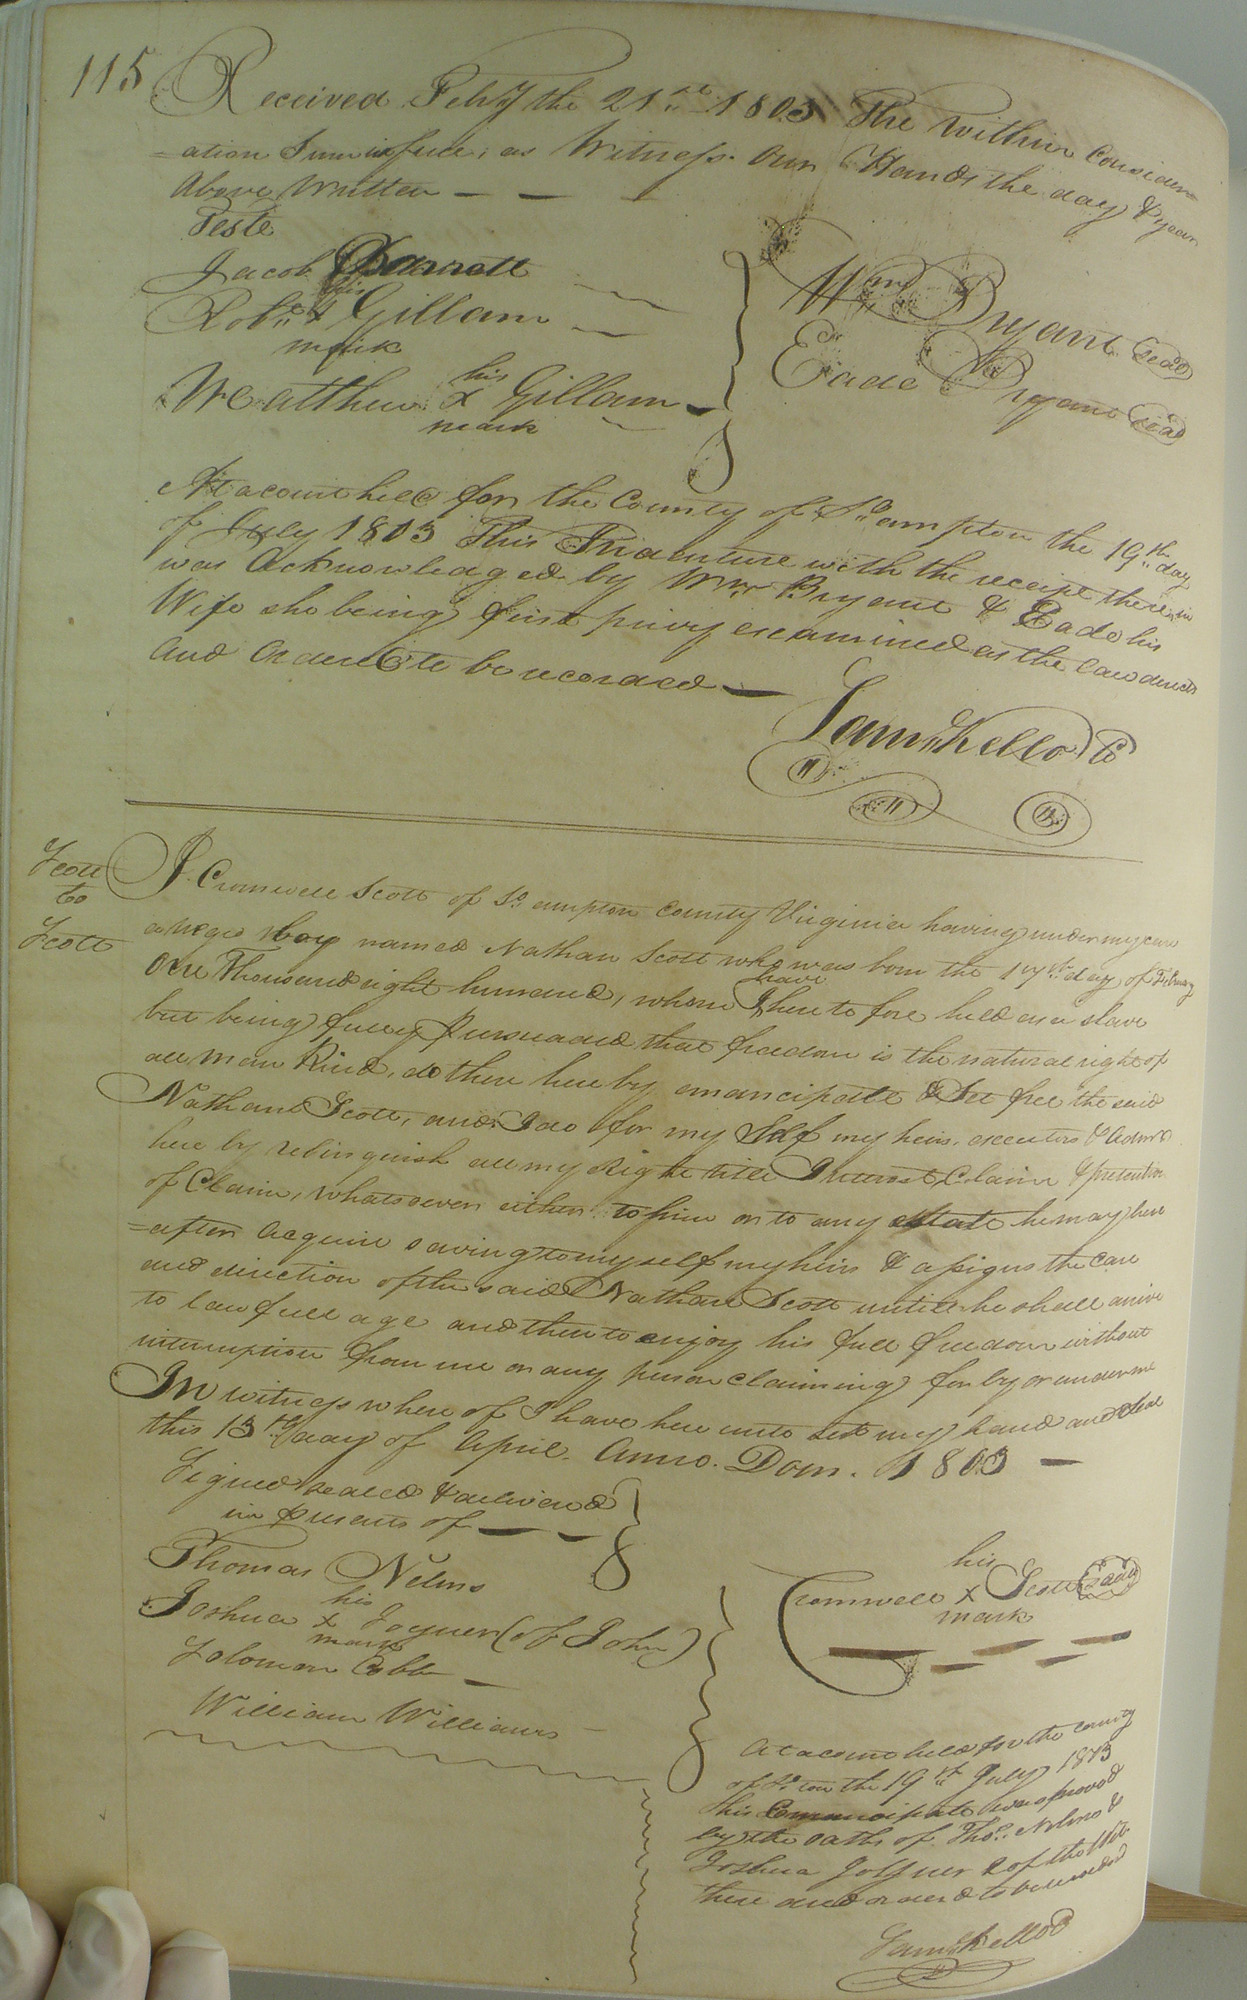 115
Received Feb'y the 21st 1803 The within Consider
=ation Sum in full, as Witness our Hands the day & year
Above Written
Teste
Jacob Barrett
Rob.t his x mark Gillam
Matthew his x mark Gillam
Wm Bryant Seal
Eade Bryant Seal
At a court held for the County of So.ampton the 19th day
of July 1803 This Indenture with the receipt there on
was Acknowledged by Wm Bryant & Eade his
Wife she being first privy examined as the law directs
and Ordered to be recorded
Sam.l Kello C
Scott
to
Scott
I Cromwell Scott of So.ampton County Virginia having under my care
a Negro boy named Nathan Scott who was born the 17th day of February
One Thousand eight hundred, whom I have here to fore held as a slave
but being fully Persuaded that freedom is the natural right of
all man Kind, do then here by emancipate & Set free the said
Nathan Scott, and I do for my Self my heirs, executors & Adm.rs
here by relinquish all my Right title Interest, Claim & pretention
of Claim, whatsoever either to him or to any estate he may here
=after Acquire saving to my self my heirs & assigns the care
and direction of the said Nathan Scott untill he shall arive
to lawfull age and then to enjoy his full freedom without
interruption from me or any person Claiming for by or under me
In witness where of I have here unto set my hand and seal
this 13th day of April Anno. Dom. 1803
Signed sealed & delivered
in presents of
Thomas Nelms
Joshua his x mark Joyner (of John)
Solomon Cobb
William Williams
Cromwell his x mark Scott Seal
At a court held for the county
of So.ton the 19th July 1803
this Emancipate was proved
by the oaths of Tho.s Nelms &
Joshua Joyner 2 of the Wit
there and ordered to be recorded
Sam.l Kello C